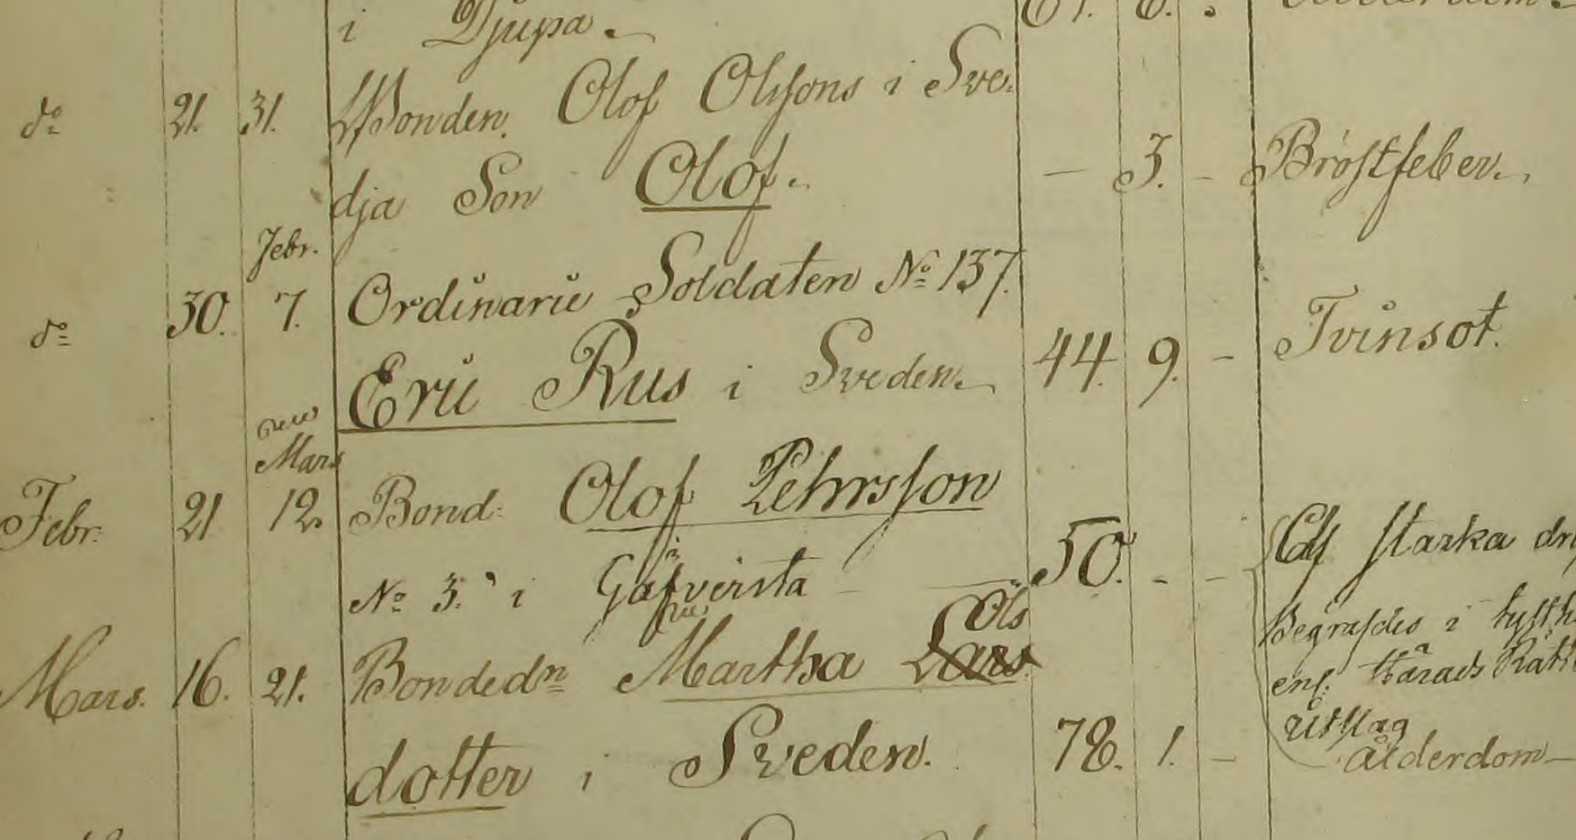 i Djupa.
do 21. 31. Bonden Olof Olssons i Sve-
dja Son Olof. — 3. - Bröstfeber.
Febr.
do 30. 7. Ordinarie Soldaten No 137.
Eric Rus i Sveden. 44. 9. - Tvinsot.
Mars
Febr. 21 12. Bond: Olof Pehrsson
No 3. i Gäfversta 50. - - Af starka
Ols
Begrafdes i tysth
Mars. 16. 21. Bondedn Martha Lars
enl. Härads Rätt
utslag
dotter i Sveden. 78. 1. - Ålderdom